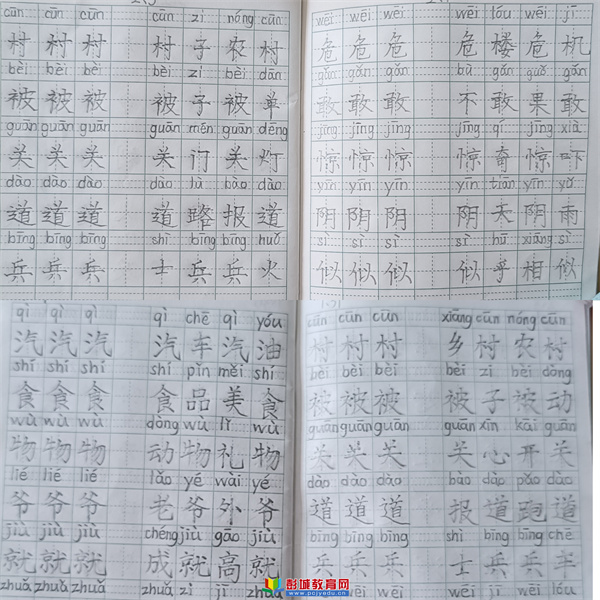 cūn cūn cūn cūn zi nóng cūn
村 村 村 村 子 农 村
bèi bèi bèi bèi zi bèi dān
被 被 被 被 子 被 单
guān guān guān guān mén guān dēng
关 关 关 关 门 关 灯
dào dào dào dào lù bào dào
道 道 道 道 路 报 道
bīng bīng bīng shì bīng bīng huǒ
兵 兵 兵 士 兵 兵 火
wēi wēi wēi wēi lóu wēi jī
危 危 危 危 楼 危 机
gǎn gǎn gǎn bù gǎn guǒ gǎn
敢 敢 敢 不 敢 果 敢
jīng jīng jīng jīng qí jīng xià
惊 惊 惊 惊 奇 惊 吓
yīn yīn yīn yīn tiān yīn yǔ
阴 阴 阴 阴 天 阴 雨
sì sì sì sì hū xiāng sì
似 似 似 似 乎 相 似
qì qì qì qì chē qì yóu
汽 汽 汽 汽 车 汽 油
shí shí shí shí pǐn měi shí
食 食 食 食 品 美 食
wù wù wù dòng wù lǐ wù
物 物 物 动 物 礼 物
yé yé lǎo yé wài yé
爷 爷 爷 老 爷 外 爷
jiù jiù jiù chéng jiù gāo jiù
就 就 就 成 就 高 就
zhuǎ zhuǎ zhuǎ zhuǎ zi jī zhuǎ
cūn cūn cūn xiāng cūn nóng cūn
村 村 村 乡 村 农 村
bèi bèi bèi bèi zi bèi dòng
被 被 被 被 子 被 动
guān guān guān guān xīn kāi guān
关 关 关 关 心 开 关
dào dào dào bào dào pǎo dào
道 道 道 报 道 跑 道
bīng bīng bīng shì bīng bīng chē
兵 兵 兵 士 兵 兵 车
彭城教育网
www.pcjyedu.cn